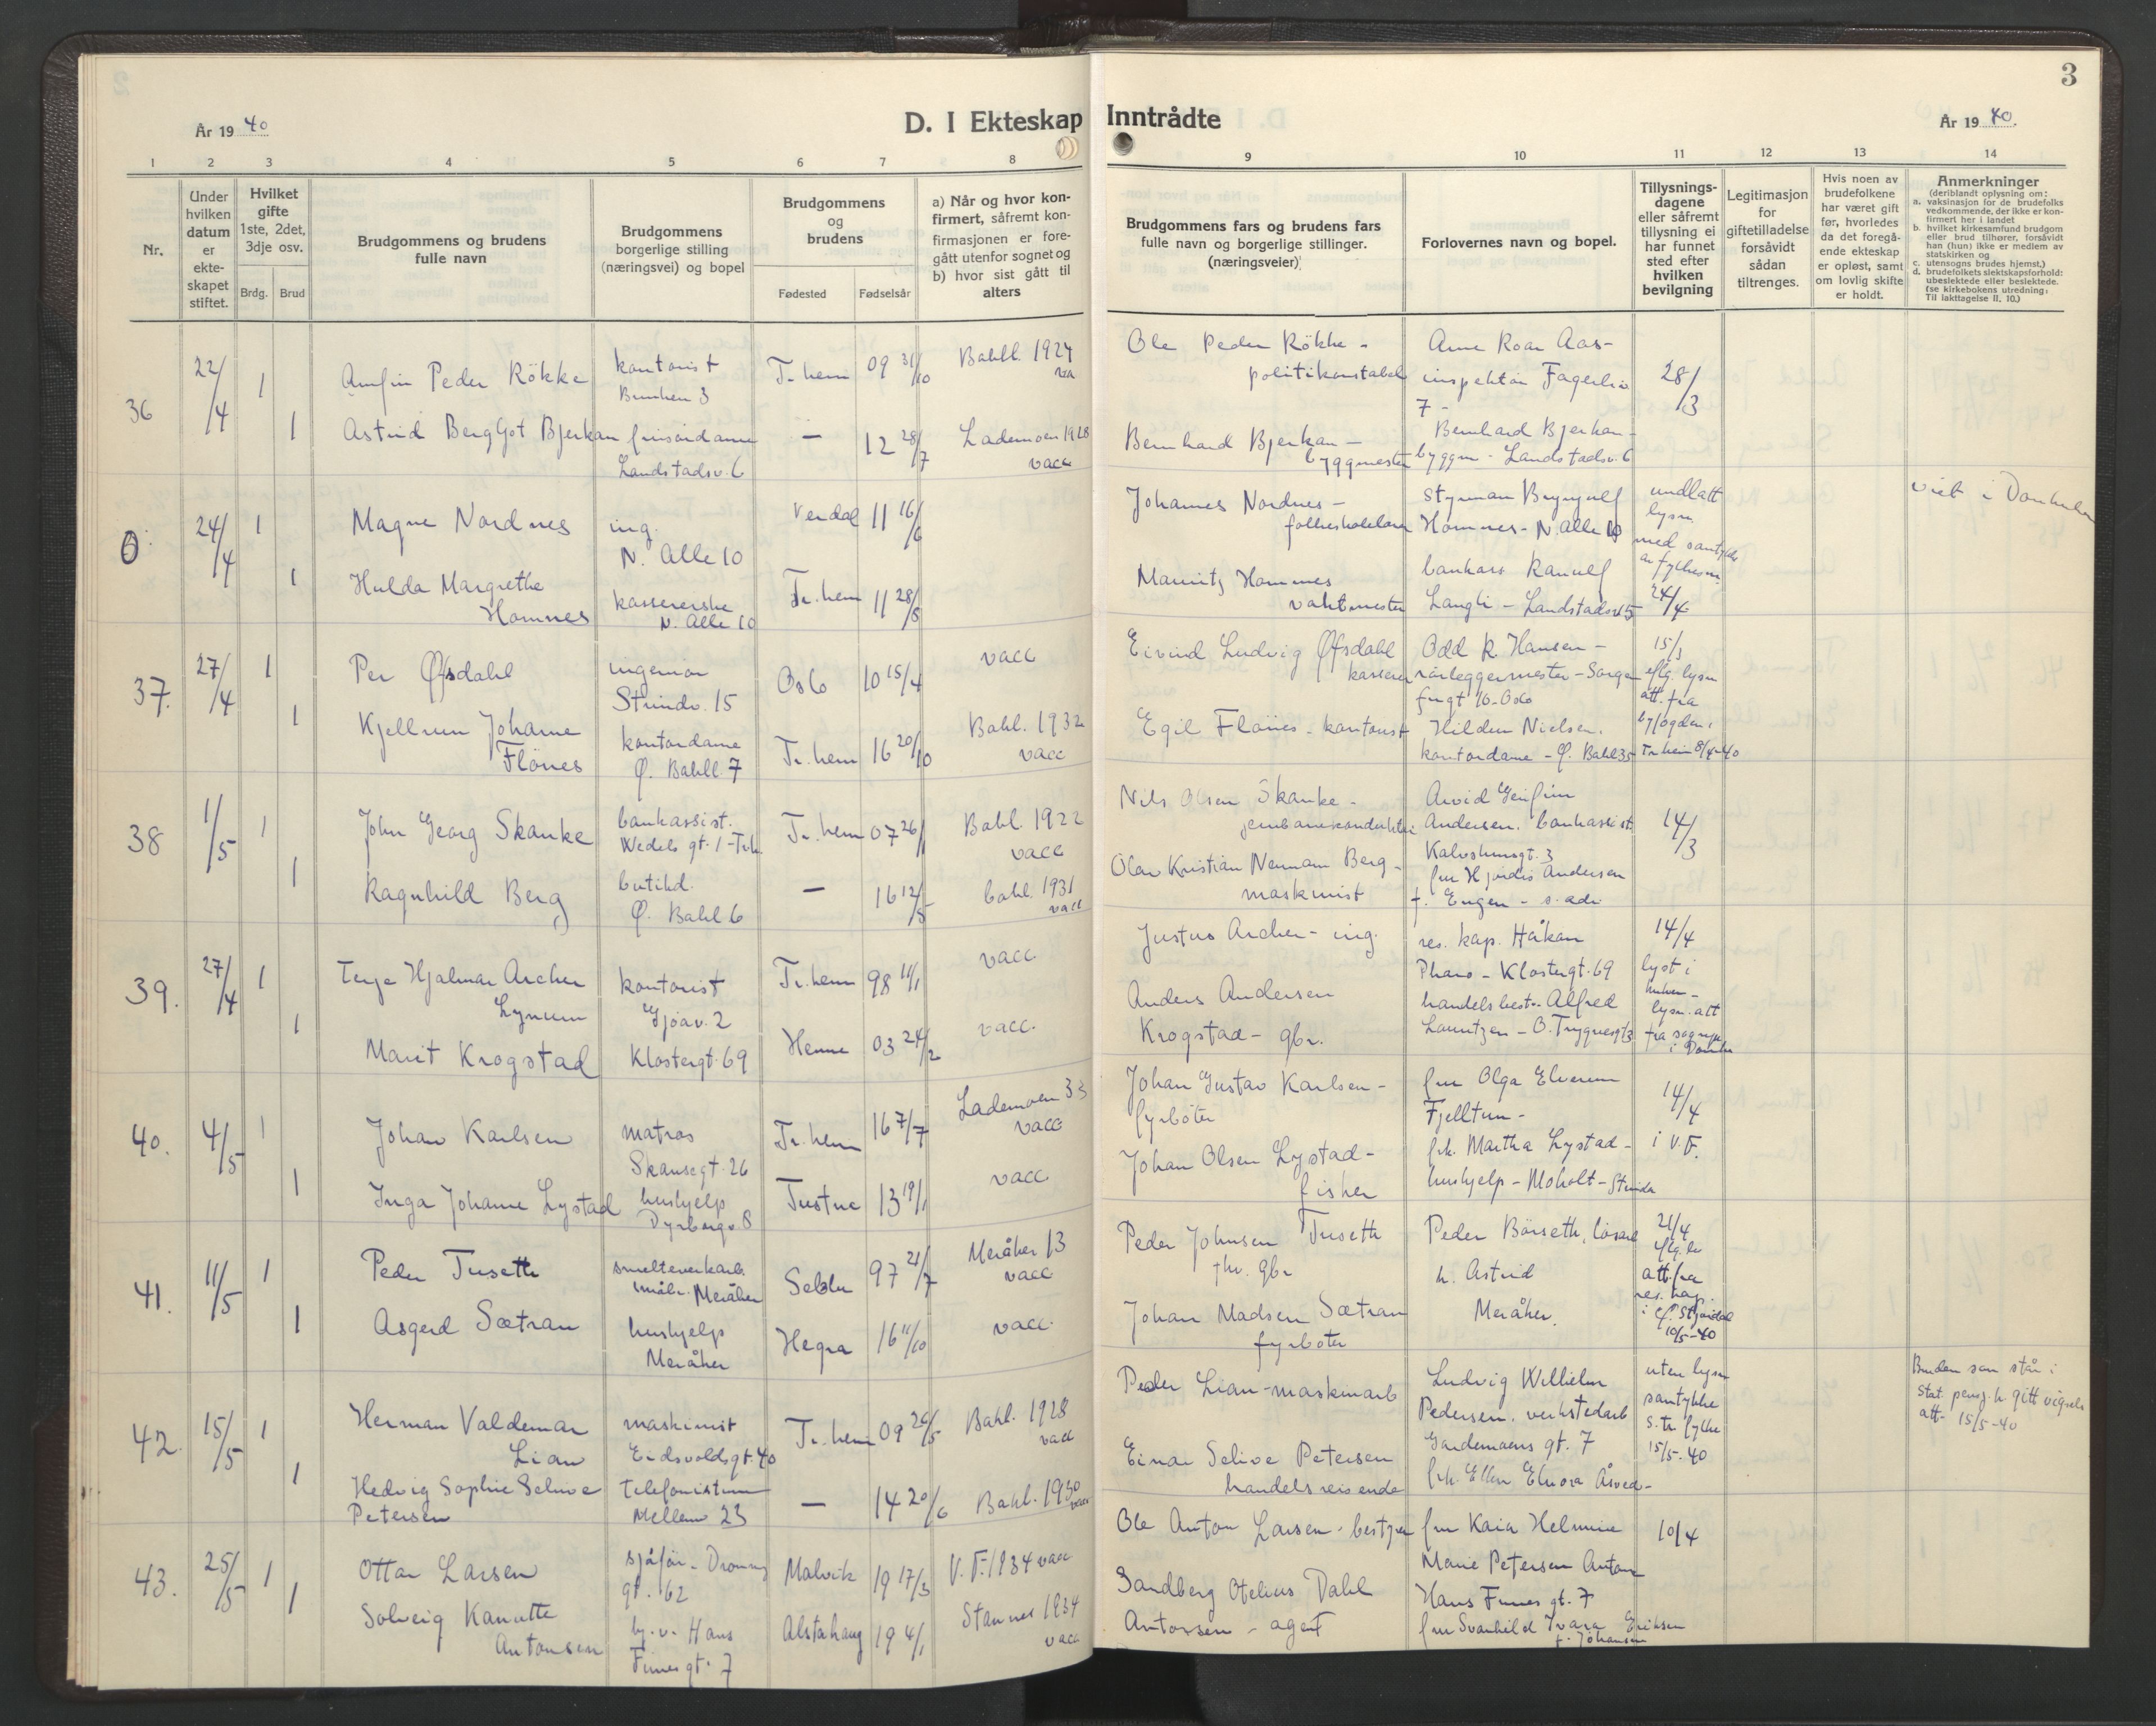 År 1940
D. I Ekteskap Inntrådte
År 1940.
3
1 2 3 4 5 6 7 8 9 10 11 12 13 14
Nr.
Under hvilken datum er ekte-skapet stiftet.
Hvilket gifte 1ste, 2det, 3dje osv.
Brdg. Brud
Brudgommens og brudens fulle navn
Brudgommens borgerlige stilling (næringsvei) og bopel
Brudgommens og brudens
Fødested Fødselsår
a) Når og hvor kon-firmert, såfremt kon-firmasjonen er fore-gått utenfor sognet og b) hvor sist gått til alters
Brudgommens fars og brudens fars fulle navn og borgerlige stillinger. (næringsveier)
Forlovernes navn og bopel.
Tillysnings-dagene eller såfremt tillysning ei har funnet sted efter hvilken bevilgning
Legitimasjon for giftetilladelse forsåvidt sådan tiltrenges.
Hvis noen av brudefolkene har været gift før, hvorledes da det foregå-ende ekteskap er opløst, samt om lovlig skifte er holdt.
Anmerkninger
(deriblandt oplysning om:
a. vaksinasjon for de brudefolks vedkommende, der ikke er kon-firmert her i landet
b. hvilket kirkesamfund brudgom eller brud tilhører, forsåvidt han (hun) ikke er medlem av statskirken og
c. utensogns brudes hjemst.)
d. brudefolkets slektskapsforhold: ubeslektede eller beslektede.
(se kirkebokens utredning: Til iakttagelse II, 10.)
36 22/4 1 Arnfin Peder Rökke kontorist Tr.hem 09 31/10 Bakkl. 1924 Ole Peder Rökke - Arne Roar Aas- 28/3
Brunhen 3 politikonstabel inspektör 7 -
1 Astrid Berggot Bjerkan frisördame — 12 28/7 Lademoen 1928 Bernhard Bjerkan — Bernhard Bjerkan -
Landstadsv. 6 vacc byggmester byggm - Landstadsv. 6
0 24/4 1 Magne Nordnes ing. Verdal 11 16/6 Johannes Nordnes - styrman Brynjulf undlatt viet i Domkirken
N. Alle 10 Homnes - N. Alle 10 lysn.
med samtykke
1 Hulda Margrethe Tr.hem 11 28/8 bankass Ranulf av fylkesm.
Homnes kassererske vaktmester Langli - Landstadsv 5 24/4
N. Alle 10
37. 27/4 1 Per Øfsdahl ingeniør Oslo 10 15/4 vacc Eivind Ludvig Øfsdahl Odd R. Hansen - 15/3
Strindv. 15 kasserer rörleggermester - Sorgen eflg. lysn
frigt 16 - Oslo att. fra
1 Kjellrun Johanne kontordame Tr.hem 16 20/10 Bakl. 1932 Egil Flönes - kontorist Hildur Nielsen. byfogden i
Flönes Ø. Bakkl. 7 vacc kontordame - Ø. Bakl 35 Tr.heim 8/4-40
38 1/5 1 John Georg Skanke bankassist. Tr.hem 07 26/1 Bakl. 1922 Nils Olsen Skanke - Arvid 14/3
Wedels gt. 1 - Tr.h. vacc jernbanekonduktör Andersen. bankassist
1 Ragnhild Berg butikd. — 16 12/5 bakl. 1931 Olav Kristian Berg - fru Hjördis Andersen
Ø. Bakl 6 vacc maskinist f. Engen - s. adr.
39. 27/4 1 Terje Hjalmar Archer kontorist Tr.hem 98 11/1 vacc. Justus Archer - ing. res. kap. Håkan 14/4
Lynum Gjøav. 2 Pharo - Klostergt. 69 lyst i
1 Marit Krogstad Klostergt. 69 Hemne 03 24/2 vacc. Anders Andersen handelsbest - Alfred lysn. att
Krogstad - gbr. Lauritzen - O. Trygvesgt 3 fra sognepr
i Domk
40. 4/5 1 Johan Karlsen matros Tr.hem 16 7/7 Lademoen 33 Johan Gustav Karlsen - fru Olga Elverum 14/4
Skansegt. 26 vacc fyrböter Fjelltun - i V.F.
1 Inga Johanne Lystad hushjelp Tustna 13 19/1 vacc Johan Olsen Lystad - frk. Martha Lystad -
Dyrborgv. 8 fisker hushjelp - Moholt - Strinda
41. 11/5 1 Peder Tuseth smelteverkarb. Selbu 97 21/7 Meråker 13 Peder Johnsen Tuseth Peder Börseth, lösarb 21/4
Meråker vacc fhv. gbr h. Astrid att. fra
res. kap.
1 Asgerd Sætran hushjelp Hegra 16 11/10 vacc. Johan Madsen Sætran Meråker. i Ø. Stjördal
Meråker fyrböter 10/5-40
42. 15/5 1 Herman Valdemar maskinist Tr.hem 09 26/5 Bakl. 1928 Peder Lian - maskinarb Ludvig Wilhelm uten lysn Bruden som står i
Lian Eidsvoldsgt. 40 vacc Pedersen. verkstedarb samtykke Stat. pensj. k. gitt vigsels
s. tr. fylke att. 15/5-40
1 Hedvig Sophie Selive telefonistinne — 14 20/6 Bakl. 1930 Einar Selive Petersen Gardemoens gt. 7 15/5-40
Petersen Mellemv 23 vacc handelsreisende frk. Ellen Elnora Åsved -
43. 25/5 1 Ottar Larsen sjåför - Dronn. Malvik 19 17/3 V.F. 1934 vacc Ole Anton Larsen - bestyrer fru Kaia Helmine 10/4
gt. 62 Marie Petersen Anton
1 Solveig Kanutte hj. v. Hans Alstahaug 19 4/1 Stamnes 1934 Sandberg Otelius Dahl Hans Finnes gt. 7
Antonsen Finnes gt. 7 vacc Antonsen - agent fru Svanhild Ivara Eriksen
f. Johansen